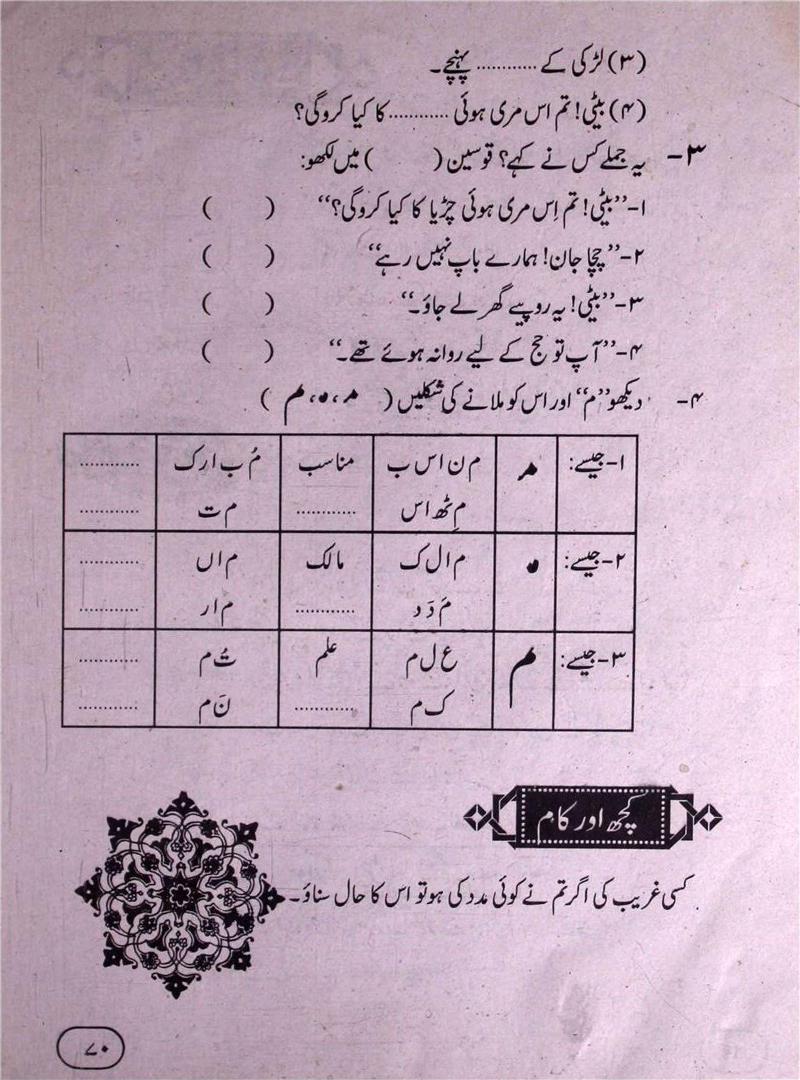 (۳) لڑکی کے ............ پہنچے۔
(۴) بیٹی! تم اس مری ہوئی ............ کا کیا کروگی؟
۳- یہ جملے کس نے کہے؟ قوسین (      ) میں لکھو:
۱-”بیٹی! تم اِس مری ہوئی چڑیا کا کیا کروگی؟“ (      )
۲-”چچا جان! ہمارے باپ نہیں رہے“ (      )
۳-”بیٹی! یہ روپیے گھر لے جاؤ۔“ (      )
۴-”آپ تو حج کے لیے روانہ ہوئے تھے۔“ (      )
۴- دیکھو ”م“ اور اس کو ملانے کی شکلیں ( مـ، ـمـ، م )
۱-جیسے: مـ م ن ا س ب مناسب مُ ب ا ر ک ............
مِ ٹھ ا س ............ م ت ............
۲-جیسے: ـمـ م ا ل ک مالک م ا ں ............
مَ دَ د ............ م ا ر ............
۳-جیسے: م ع ل م علم تُ م ............
ک م ............ نَ م ............
کچھ اور کام
کسی غریب کی اگر تم نے کوئی مدد کی ہو تو اس کا حال سناؤ۔
۷۰